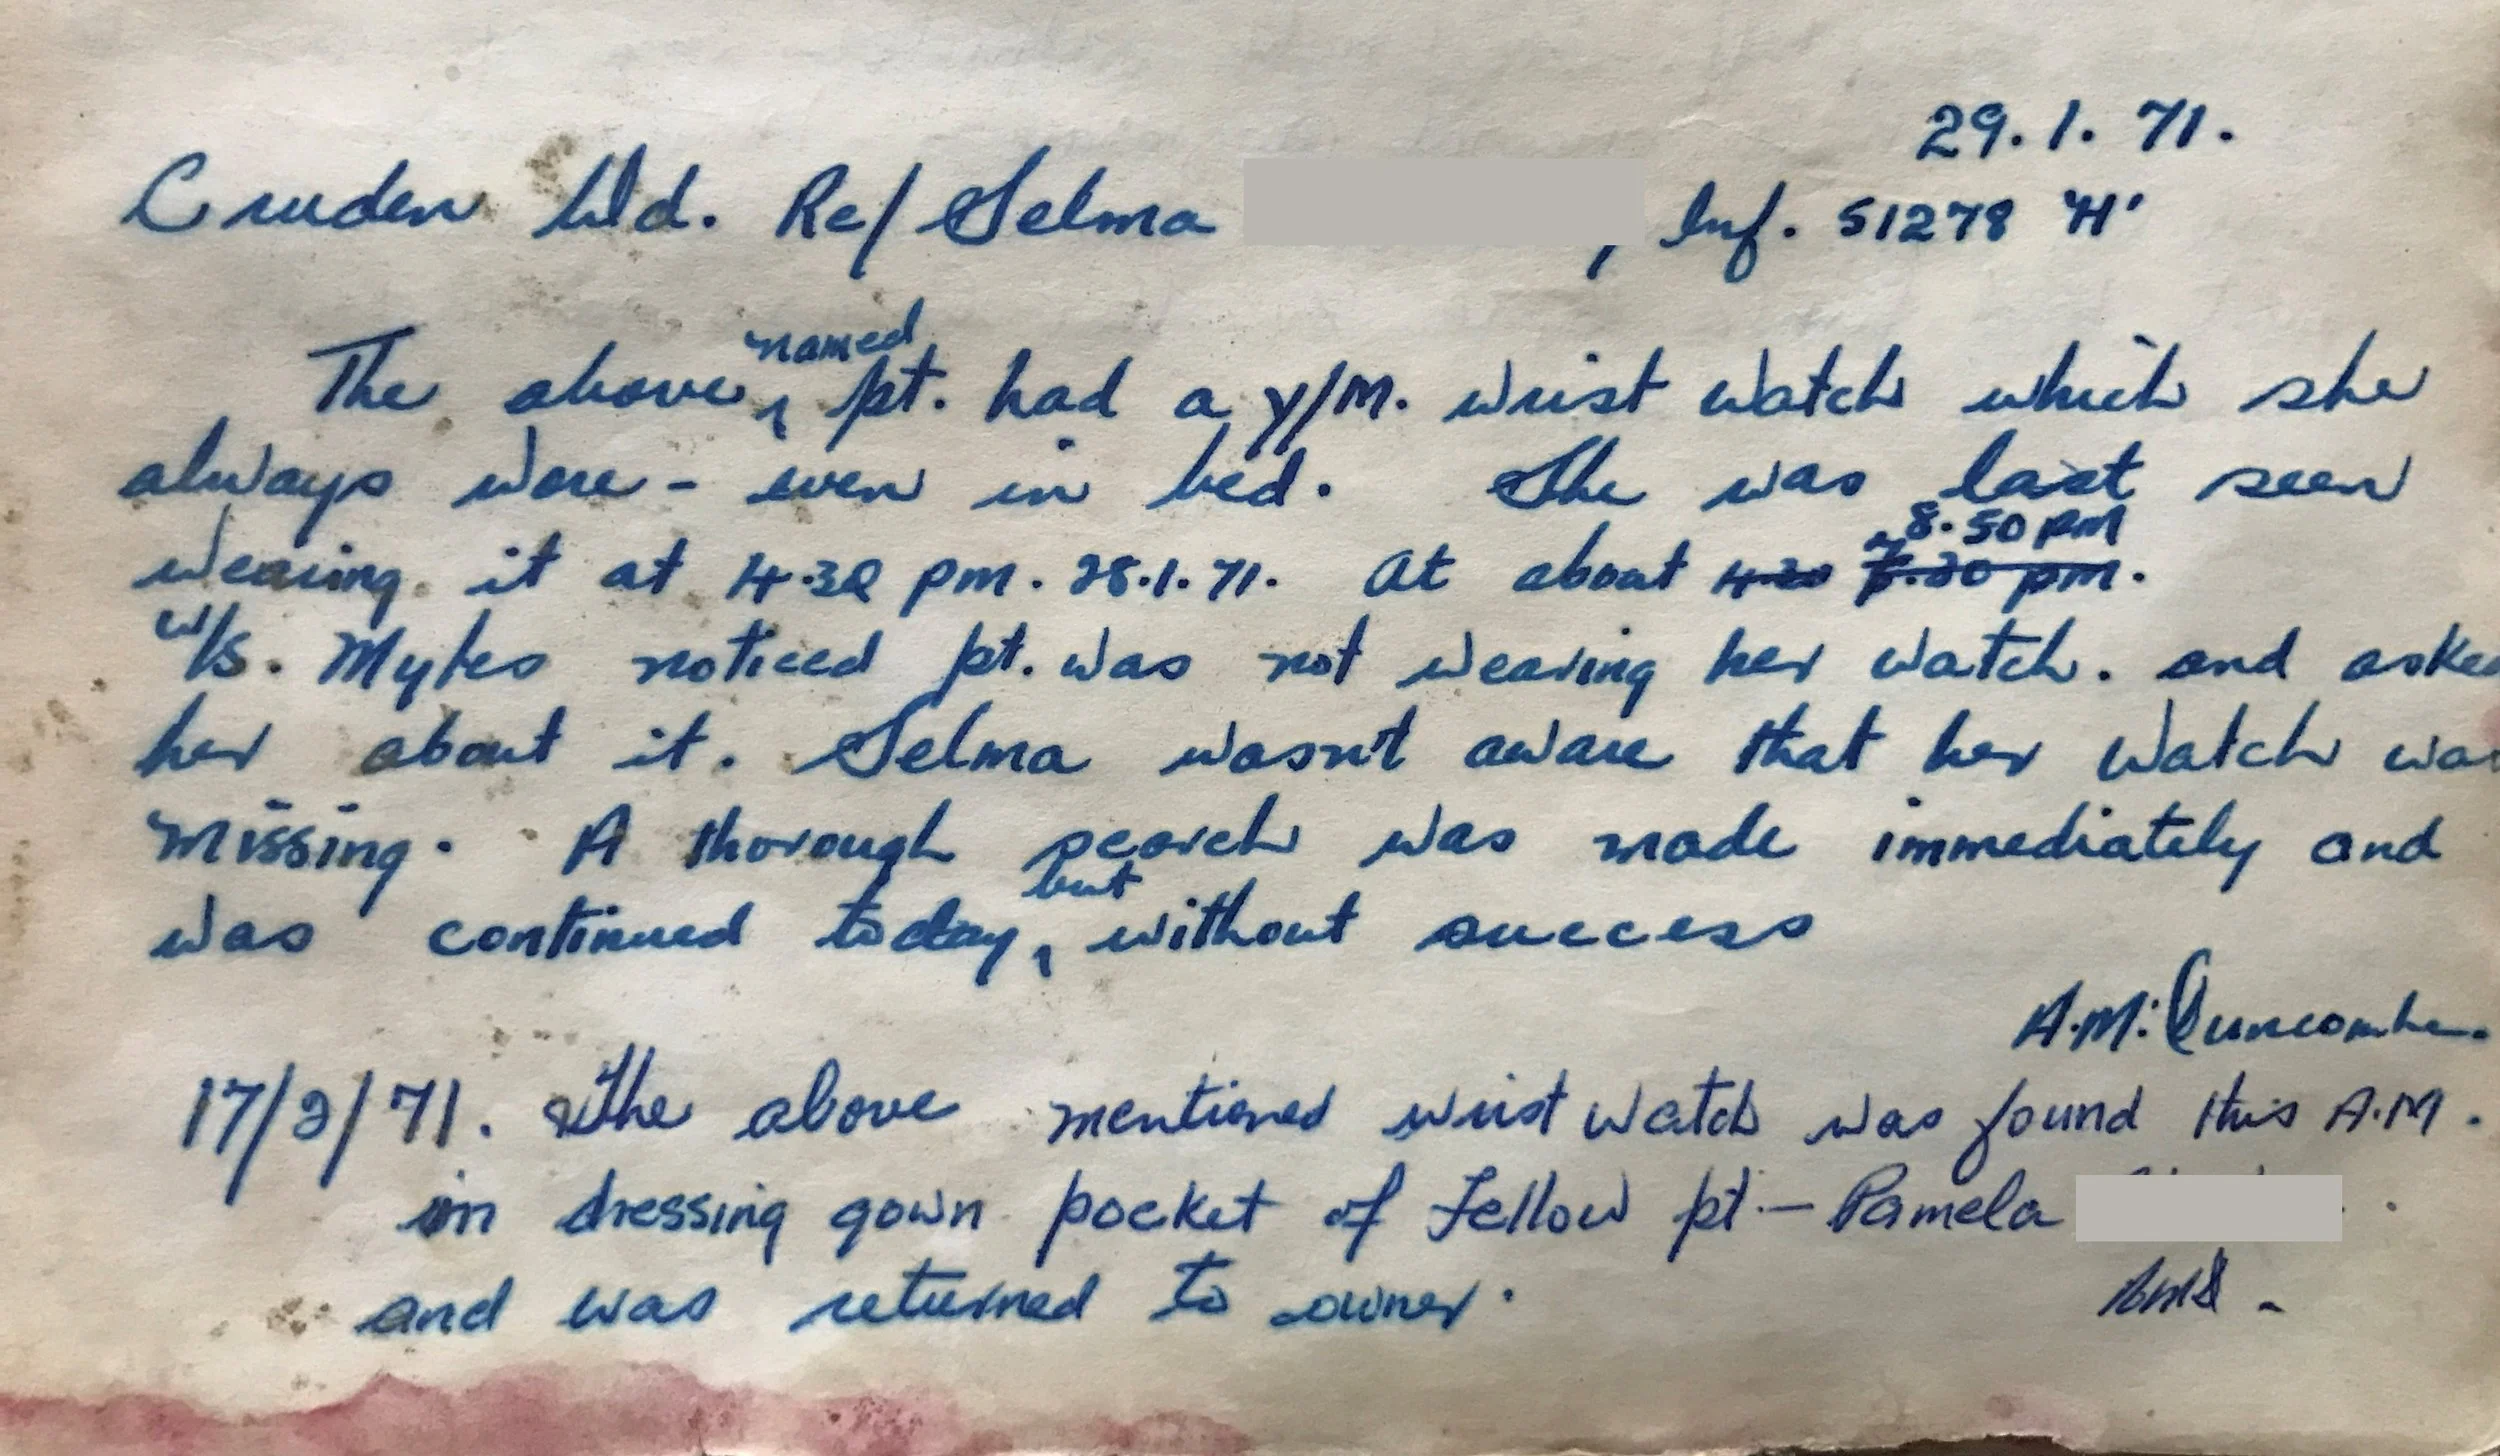 29.1.71.
Cruden Wd. Re/ Selma , Inf. 51278 'H'
The above named pt. had a y/M. wrist watch which she
always wore - even in bed. She was last seen
wearing it at 4.30 pm. 28.1.71. At about 4.30 7.30 pm. 8.50 pm
W/S. Myles noticed pt. was not wearing her watch. and asked
her about it. Selma wasn't aware that her watch was
missing. A thorough search was made immediately and
was continued today, but without success
A.M. Duncombe.
17/3/71. The above mentioned wrist watch was found this A.M.
in dressing gown pocket of fellow pt - Pamela
and was returned to owner.